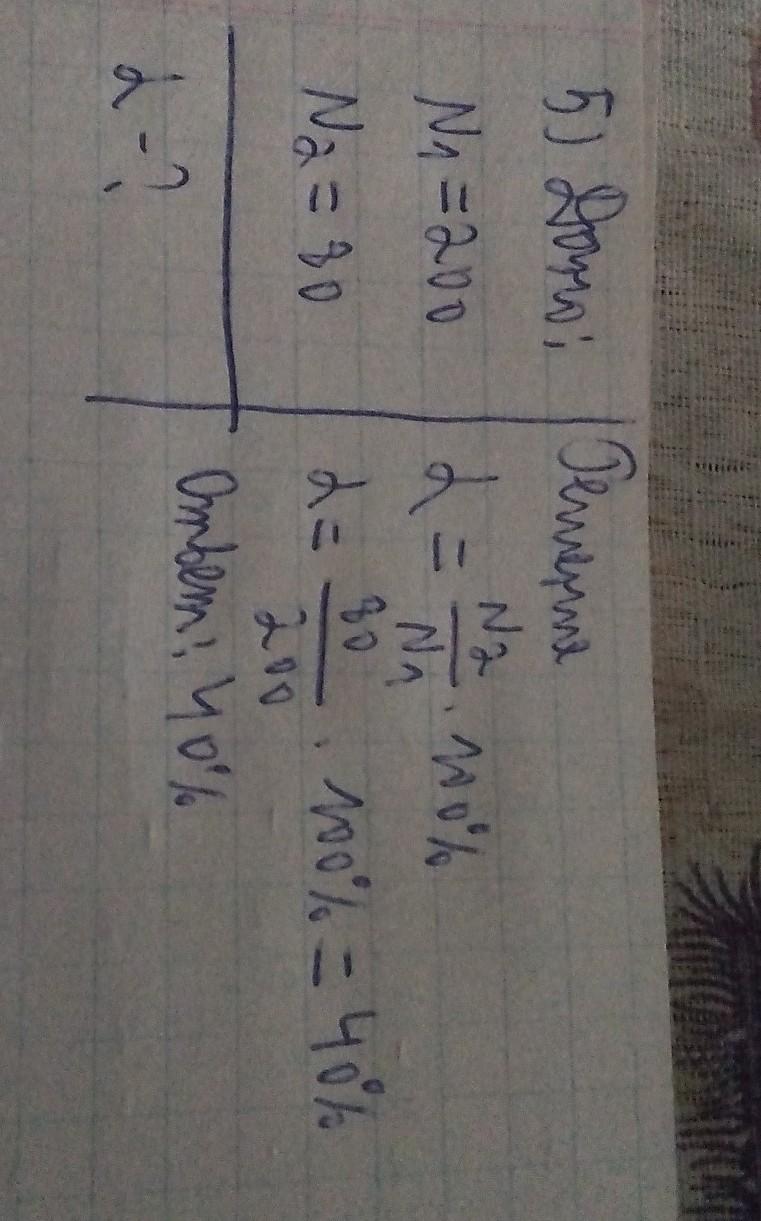 5) Дано:
N1 = 200
N2 = 80
α - ?
Решение
α = N2/N1 · 100%
α = 80/200 · 100% = 40%
Ответ: 40%